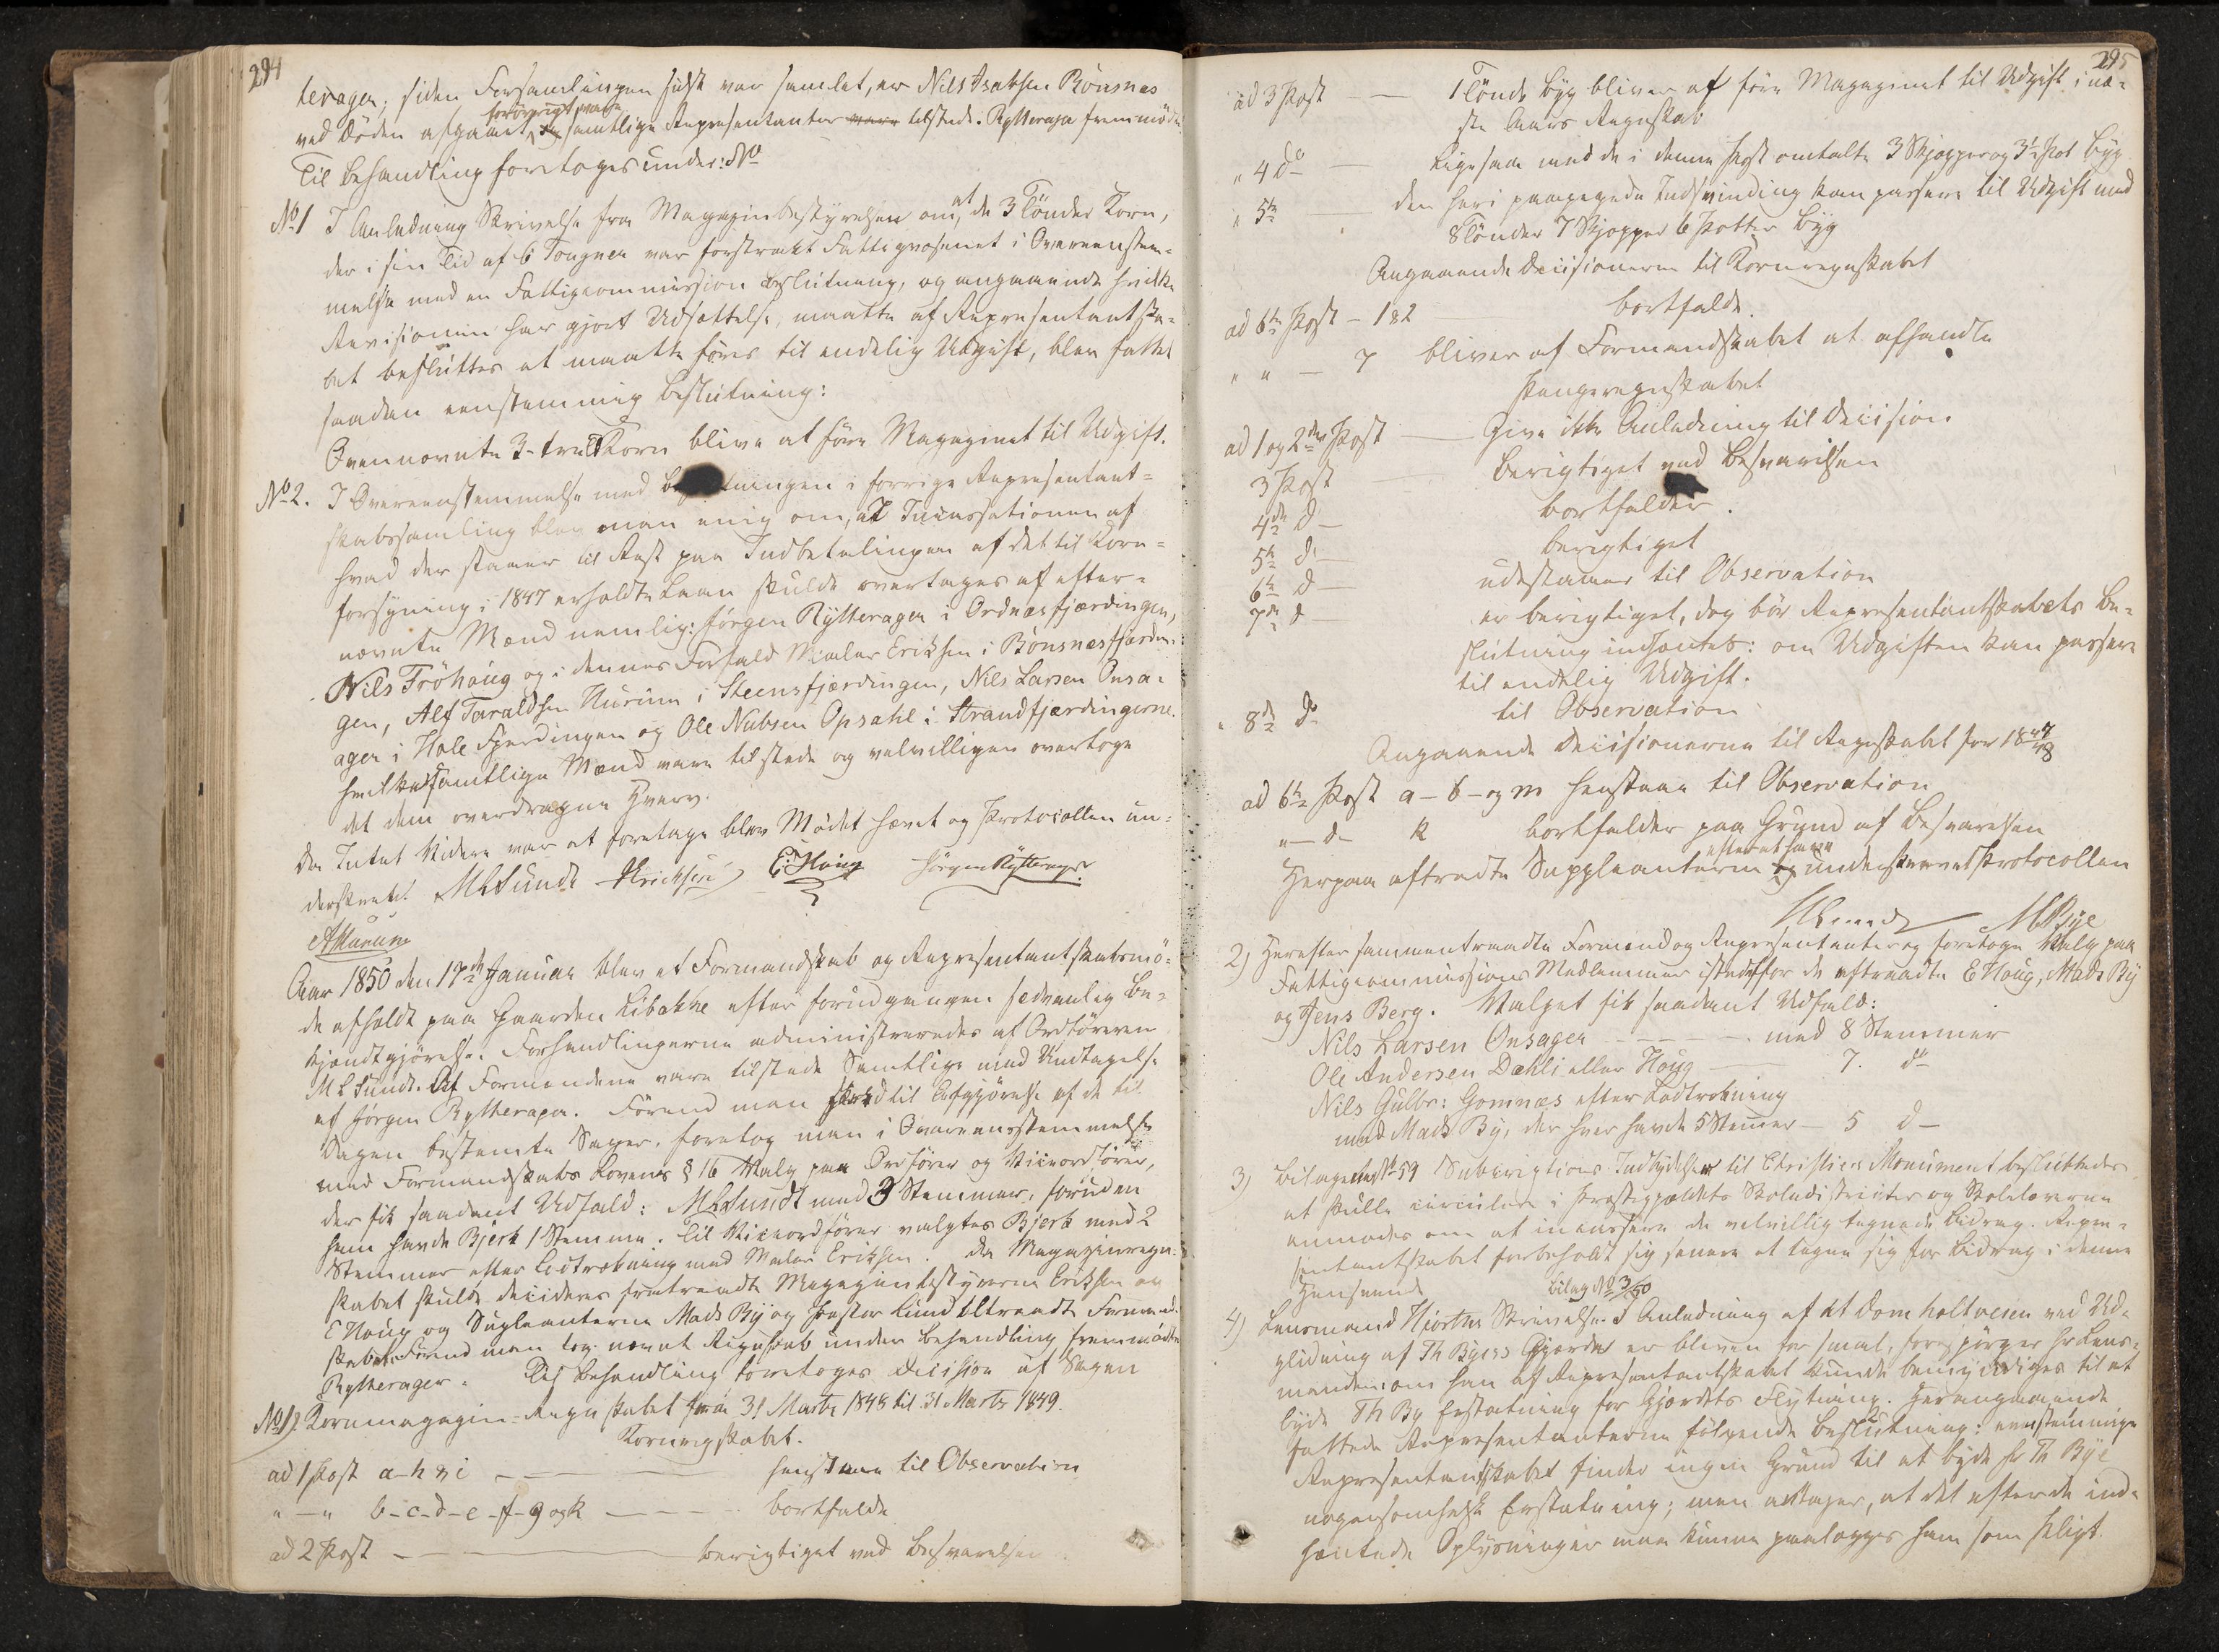 294
teragen; siden Forsamlingen sidst var samlet, er Nils Isaksen Bönsnæs
ved Döden afgaaet, forövrigt vare samtlige Repræsentanter vare tilstede. Rytteraga fremmödte
Til Behandling foretoges under: No
No 1 I Anledning Skrivelse fra Magazinbestyrelsen om, at de 3 Tönder Korn,
der i sin Tid af 6 Tougner var forstrakt Fattigvæsenet i Overeenstem-
melse med en Fattigcommission Beslutning, og angaaende hvilke
Revisionen har gjort Udsættelse, maatte af Repræsentantska-
bet besluttes at maatte föres til endelig Udgift, blev fattet
saadan eenstemmig Beslutning:
Ovennævnte 3-tre Td Korn blive at före Magazinet til Udgift.
No 2. I Overeenstemmelse med tningen i forrige Repræsentant-
skabssamling blev man enig om, at Incassationen af
hvad der staaer til Rest paa Indbetalingen af det til Korn-
forsyning i 1847 erholdte Laan skulde overtages af efter-
nævnte Mænd nemlig: Jörgen Rytteragen i Ordnæsfjærdingen,
Nils Fröhaug og i dennes Forfald Peder Eriksen i Bönsnæsfjærdin-
gen, Alf Taraldsen Hurum i Steensfjærdingen, Nils Larsen Onsa-
ager i Hole Fjerdingen og Ole Nubsen Opsahl i Strandfjærdingerne.
hvilke samtlige Mænd vare tilstede og velvilligen overtoge
det dem overdragne Hverv.
Da Intet Videre var at foretage blev Mödet hævet og Protocollen un-
derskrevet. MLSundt PErichsen E. Houg Jörgen Rytterager
AHurum
Aar 1850 den 17de Januar blev et Formandskab og Repræsentantskabsmö-
de afholdt paa Gaarden Libakke efter forudgangen sedvanlig Be-
kjendtgjörelse. Forhandlingerne administreredes af Ordföreren
M L Sundt. Af Formændene vare tilstede Samtlige med Undtagelse
af Jörgen Rytterager. Förend man skred til Afgjörelse af de til
Dagen bestemte Sager, foretog man i Overeensstemmelse
med Formandskabs Lovens § 16 Valg paa Ordförer og Viceordförer,
der fik saadant Udfald: MLSundt med 3 Stemmer, foruden
ham havde Bjerk 1 Stemme. Til Viceordförer valgtes Bjerk med 2
Stemmer efter Lodtrækning med Peder Eriksen. Da Magazinregn-
skabet skulde decideres fratraadte Magazinbestyrerne Eriksen og
E Houg og Supleanterne Mads By og Pastor Lund tiltraadte Formand-
skabet. Förend man tog nævnt Regnskab under Behandling fremmödte
Rytterager. Til Behandling foretoges Decision af Sagen
No 1). Kornmagazin-Regnskabet fra 31 Marts 1848 til 31 Marts 1849.
Kornregnskabet.
ad 1 Post a-h & i — henstaae til Observation
" — " b-c-d-e-f-g og k — bortfalde
ad 2 Post — berigtiget ved Besvarelsen
295
ad 3 Post — 1 Tönde Byg bliver at före Magazinet til Udgift i næ-
ste Aars Regnskab
" 4 do — Ligesaa med de i denne Post omtalte 3 Skjepper og 3½ Pot Byg
" 5te den heri paapegede Indsvinding kan passere til Udgift med
8 Tönder 7 Skjepper 6 Potter Byg
Angaaende Decisionerne til Kornregnskabet
ad 6te Post — 1 & 2 bortfalde.
" " — 7 bliver af Formandskabet at afhandle
Pengeregnskabet
ad 1 og 2den Post — Give ikke Anledning til Decision
3 Post berigtiget ved Besvarelsen
4de do — bortfalder.
5te do — berigtiget
6te do — udestaaer til Observation
7de do — er berigtiget, dog bör Repræsentantskabets Be-
slutning indhentes: om Udgiften kan passere
til endelig Udgift.
" 8de do til Observation
Angaaende Decisionerne til Regnskabet for 1847/48
ad 6te Post a-b-og m henstaae til Observation
" — d — k bortfalder paa Grund af Besvarelsen
Herpaa aftraadte Suppleanterne efter at have underskrevet Protocollen
MBye
2) Herefter sammentraadte Formænd og Repræsentanter og foretoge Valg paa
Fattigcommissions Medlemmer istedetfor de aftraadte E Houg, Mads By
og Jens Berg. Valget fik saadant Udfald:
Nils Larsen Onsager — — — med 8 Stemmer
Ole Andersen Dæhli eller Houg — 7. do
Nils Gulbr: Gomnæs efter Lodtrækning
med Mads By, der hver havde 5 Stemer — 5 d —
3) Bilaget No 59 Subscriptions-Indbydelser til Christies Monument besluttedes
at skulle circulere i Præstegjeldets Skoledistricter og Skolelærerne
anmodes om at incassere de velvillig tegnede Bidrag. Repræ-
sentantskabet forbeholdt sig senere at tegne sig for Bidrag i denne
Henseende
Bilag No 3/50
4) Lensmand Hjorths Skrivelse. I Anledning af at Domholtveien ved Ud-
glidning af Th Byess Gjærde er bleven for smal, forespörger Hr Lens-
manden: om han af Repræsentantskabet kunde bemyndiges til at
byde Th By Erstatning for Gjærdets Flytning. Herangaaende
fattede Repræsentanterne fölgende Beslutning: eenstemmige
Repræsentantskabet finder ingen Grund til at byde Hr Th Bye
nogensomhelst Erstatning; men antager, at det efter de ind-
hentede Oplysninger maa kunne paalægges ham som Pligt.